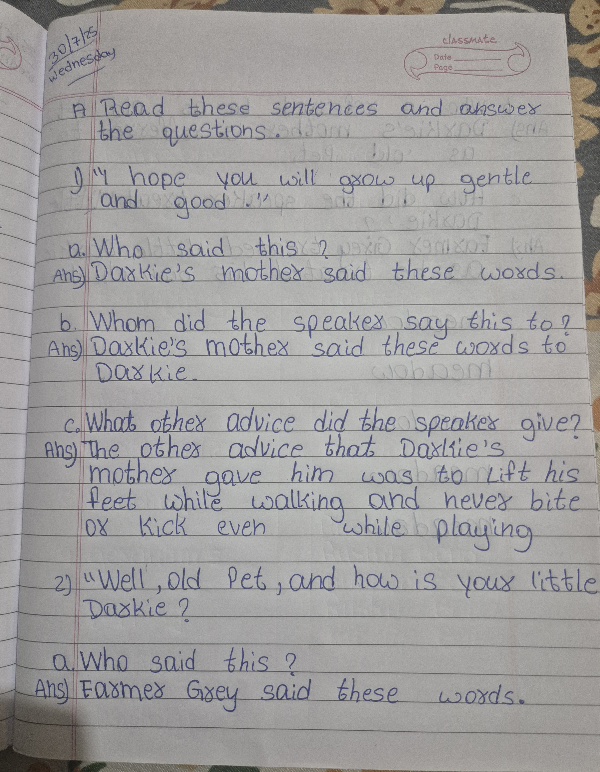 30/7/25
Wednesday
classmate
Date
Page
A Read these sentences and answer
the questions.
1) "I hope you will grow up gentle
and good"
a. Who said this ?
Ans) Darkie's mother said these words.
b. Whom did the speaker say this to ?
Ans) Darkie's mother said these words to
Darkie.
c. What other advice did the speaker give?
Ans) The other advice that Darkie's
mother gave him was to Lift his
feet while walking and never bite
or kick even while playing
2) "Well, old Pet, and how is your little
Darkie ?
a. Who said this ?
Ans) Farmer Grey said these words.